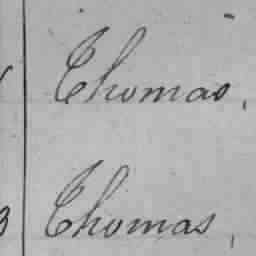 Thomas,
3 Thomas,